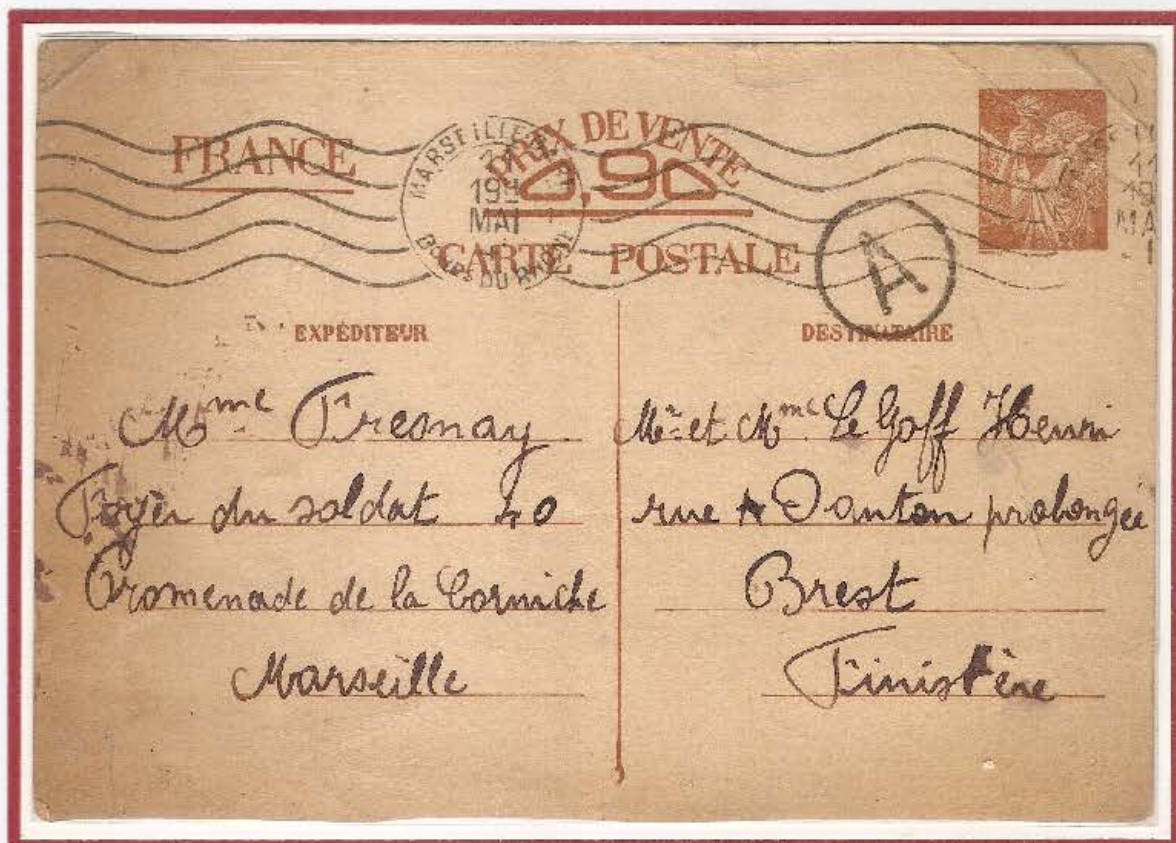 FRANCE
PRIX DE VENTE
0,90
CARTE POSTALE
MARSEILLE
MAI
DU RHONE
A
MA
EXPÉDITEUR
Mme Fresnay
Foyer du soldat 40
Promenade de la Corniche
Marseille
DESTINATAIRE
Mr et Mme Le Goff Henri
rue Danton prolongée
Brest
Finistère